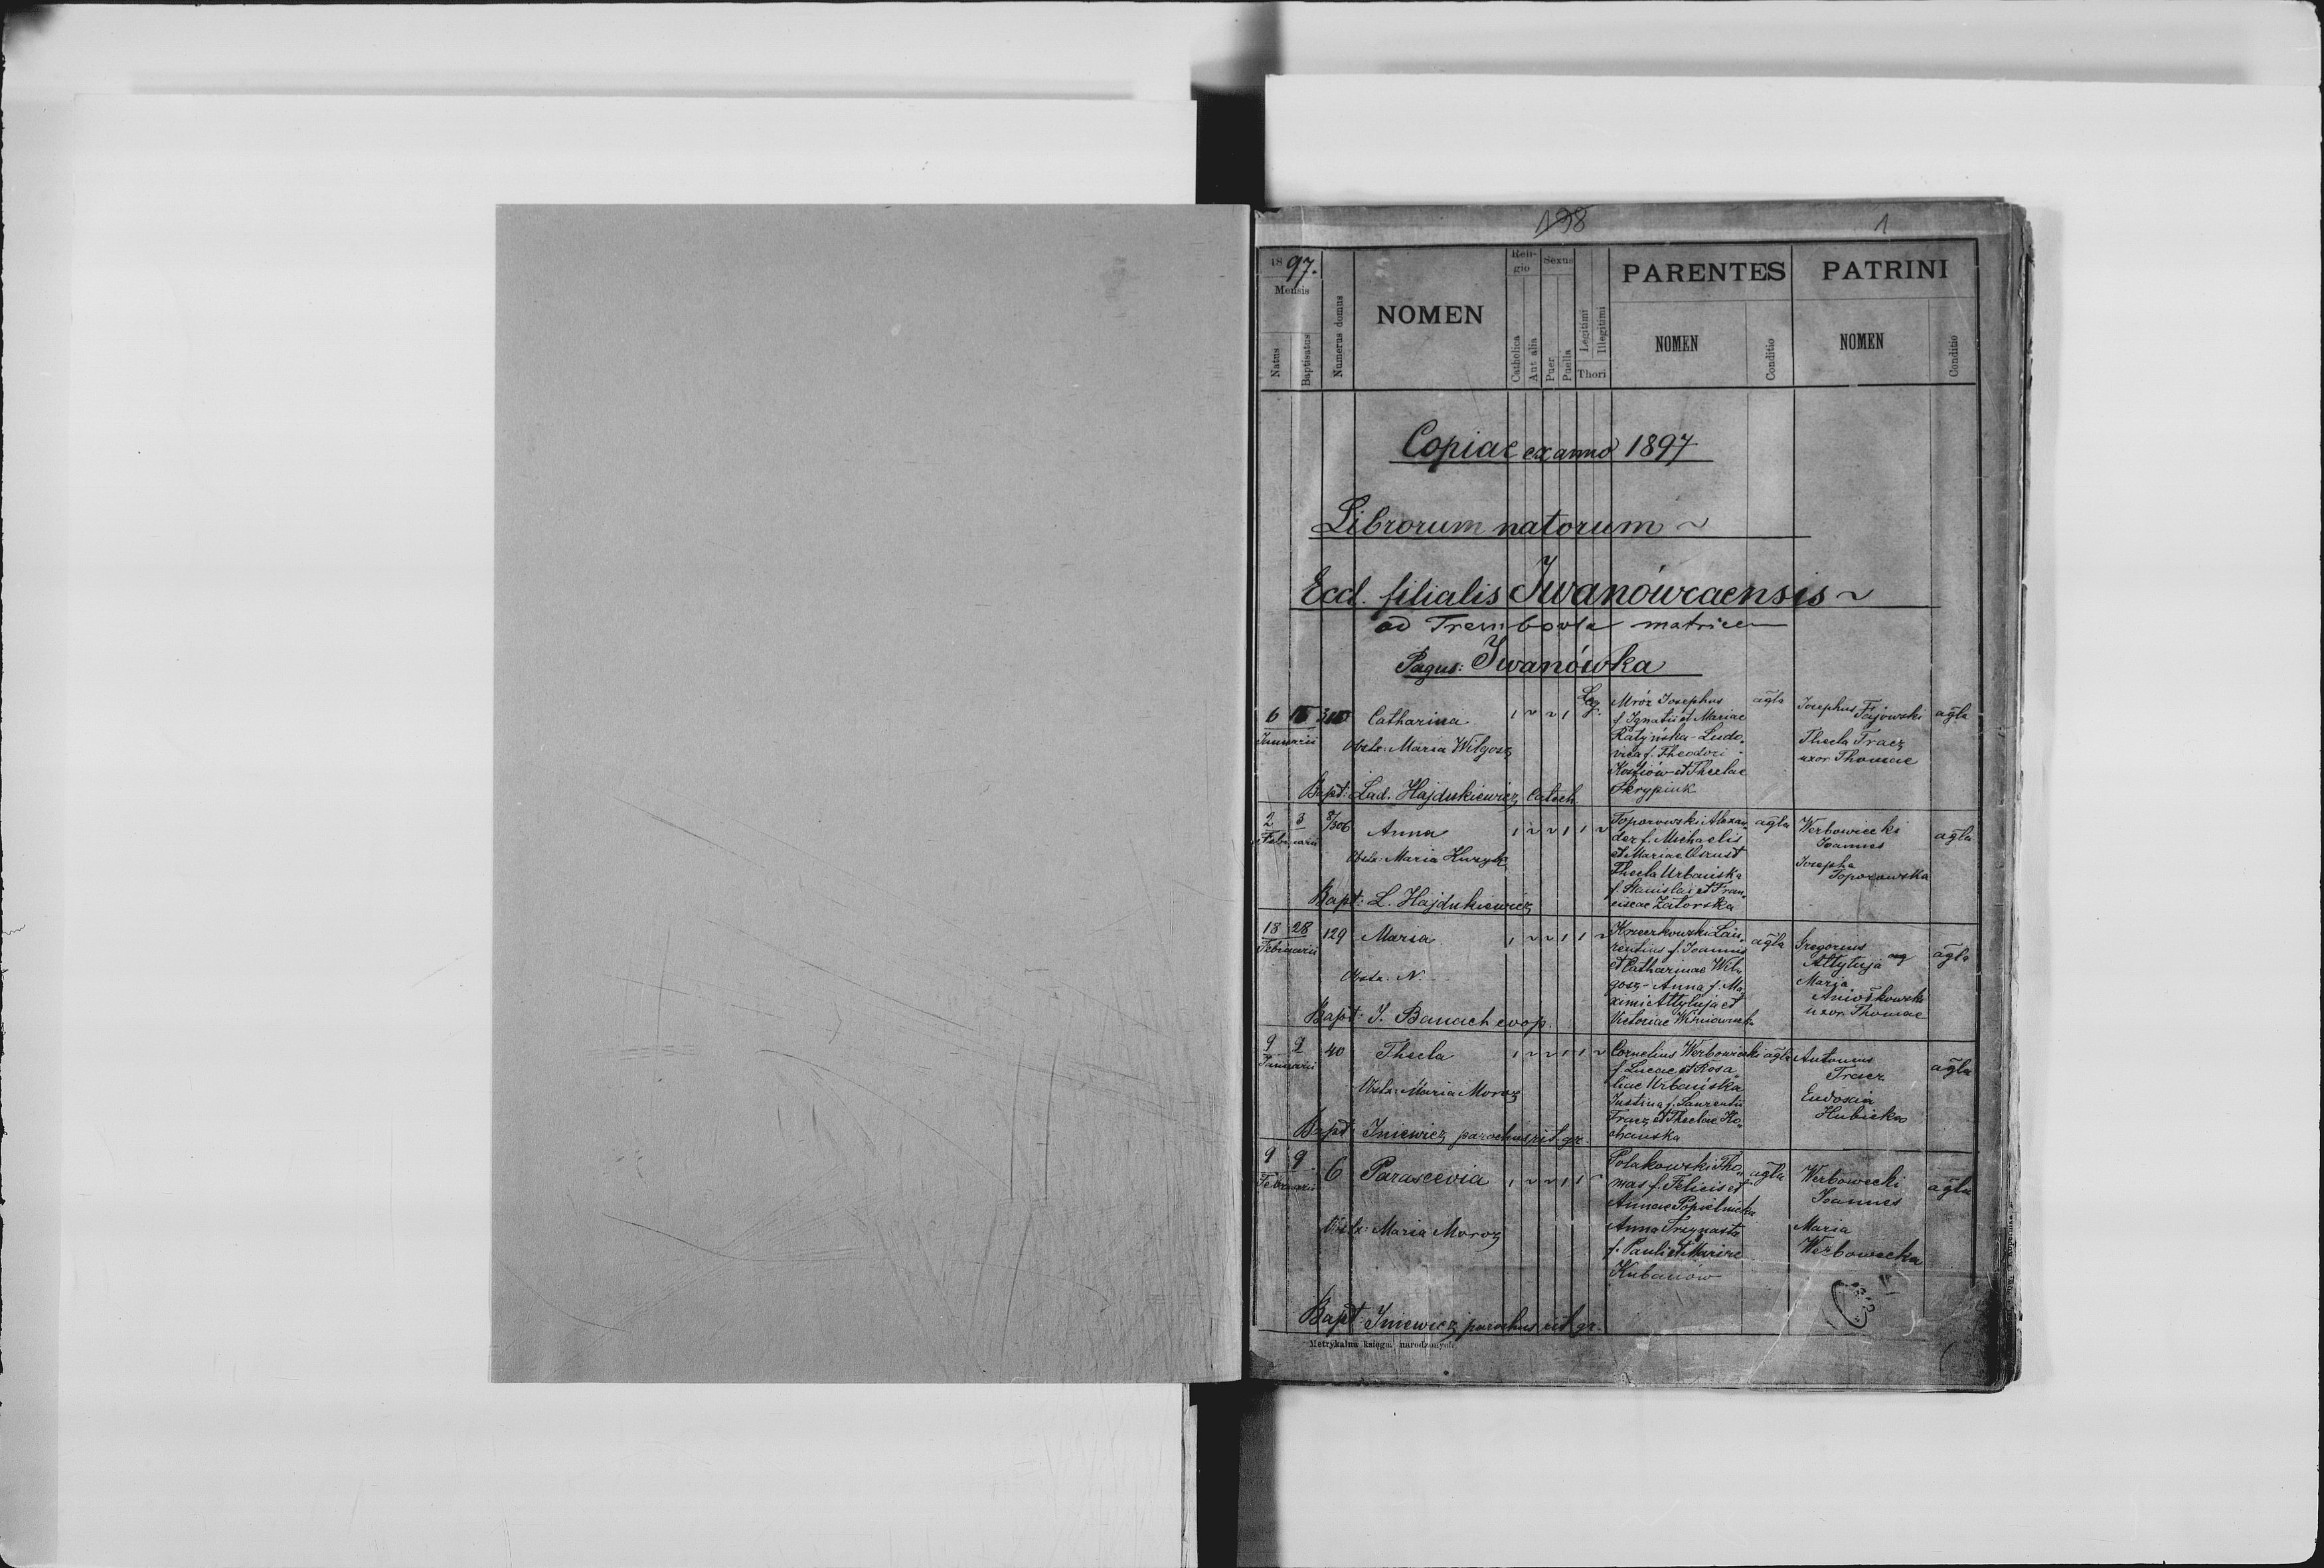 198
1
1897.
Mensis
Natus
Baptisatus
Numerus domus
NOMEN
Reli-
gio
Catholica
Aut alia
Sexus
Puer
Puella
Legitimi
Illegitimi
Thori
PARENTES
NOMEN
Conditio
PATRINI
NOMEN
Conditio
Copiae ex anno 1897
Librorum natorum ~
Eccl. filialis Iwanówcaensis ~
ad Trembowla matricem
Pagus: Iwanówka
6
Januarii
Catharina
1 ~ ~ 1 Leg.
Obstx: Maria Wilgosz
Bapt: Lad. Hajdukiewicz Catech.
Mróz Josephus
f. Ignatii et Mariae
Ratyńska - Ludo-
vica f. Theodori
Kostiów et Theclae
Skrypiuk
agla
Josephus Fajowski
Thecla Tracz
uxor Thomae
agla
2 3
Februarii
8/306
Anna
1 ~ ~ 1 1 ~
Obstx: Maria
Bapt: L. Hajdukiewicz
Toporowski Alexan-
der f. Michaelis
et Mariae
Thecla Urbańska
f. Stanislai et Fran-
ciscae Zatorska
agla
Werbowiecki
Joannes
Josepha
Toporowska
agla
18 28
Februarii
129
Maria
1 ~ ~ 1 1 ~
Obstx. N.
Bapt: J. Banach coop.
Lau-
rentius f. Joannis
et Catharinae Wil-
gosz - Anna f. Ma-
ximi Attyłuja et
Victoriae
agla
Gregorius
Attyłuja
Maria
uxor Thomae
agla
9 9
Januarii
40
Thecla
1 ~ ~ 1 1 ~
Obstx: Maria Moroz
Bapt: Iniewicz parochus rit. gr.
Cornelius Werbowiecki
f. Lucae et Rosa-
liae Urbańska
Justina f. Laurentii
Tracz et Theclae Ko-
chańska
agla
Antonius
Tracz
Eudoxia
Hubicka
agla
9 9
Februarii
6
Parascevia
1 ~ ~ 1 1 ~
Obstx: Maria Moroz
Bapt: Iniewicz parochus rit. gr.
Polakowski Tho-
mas f. Felicis et
Annae Popielnicka
Anna
f. Pauli et Mariae
Kubanów
agla
Werbowecki
Joannes
Maria
Werbowecka
agla
Metrykalna księga narodzonych.